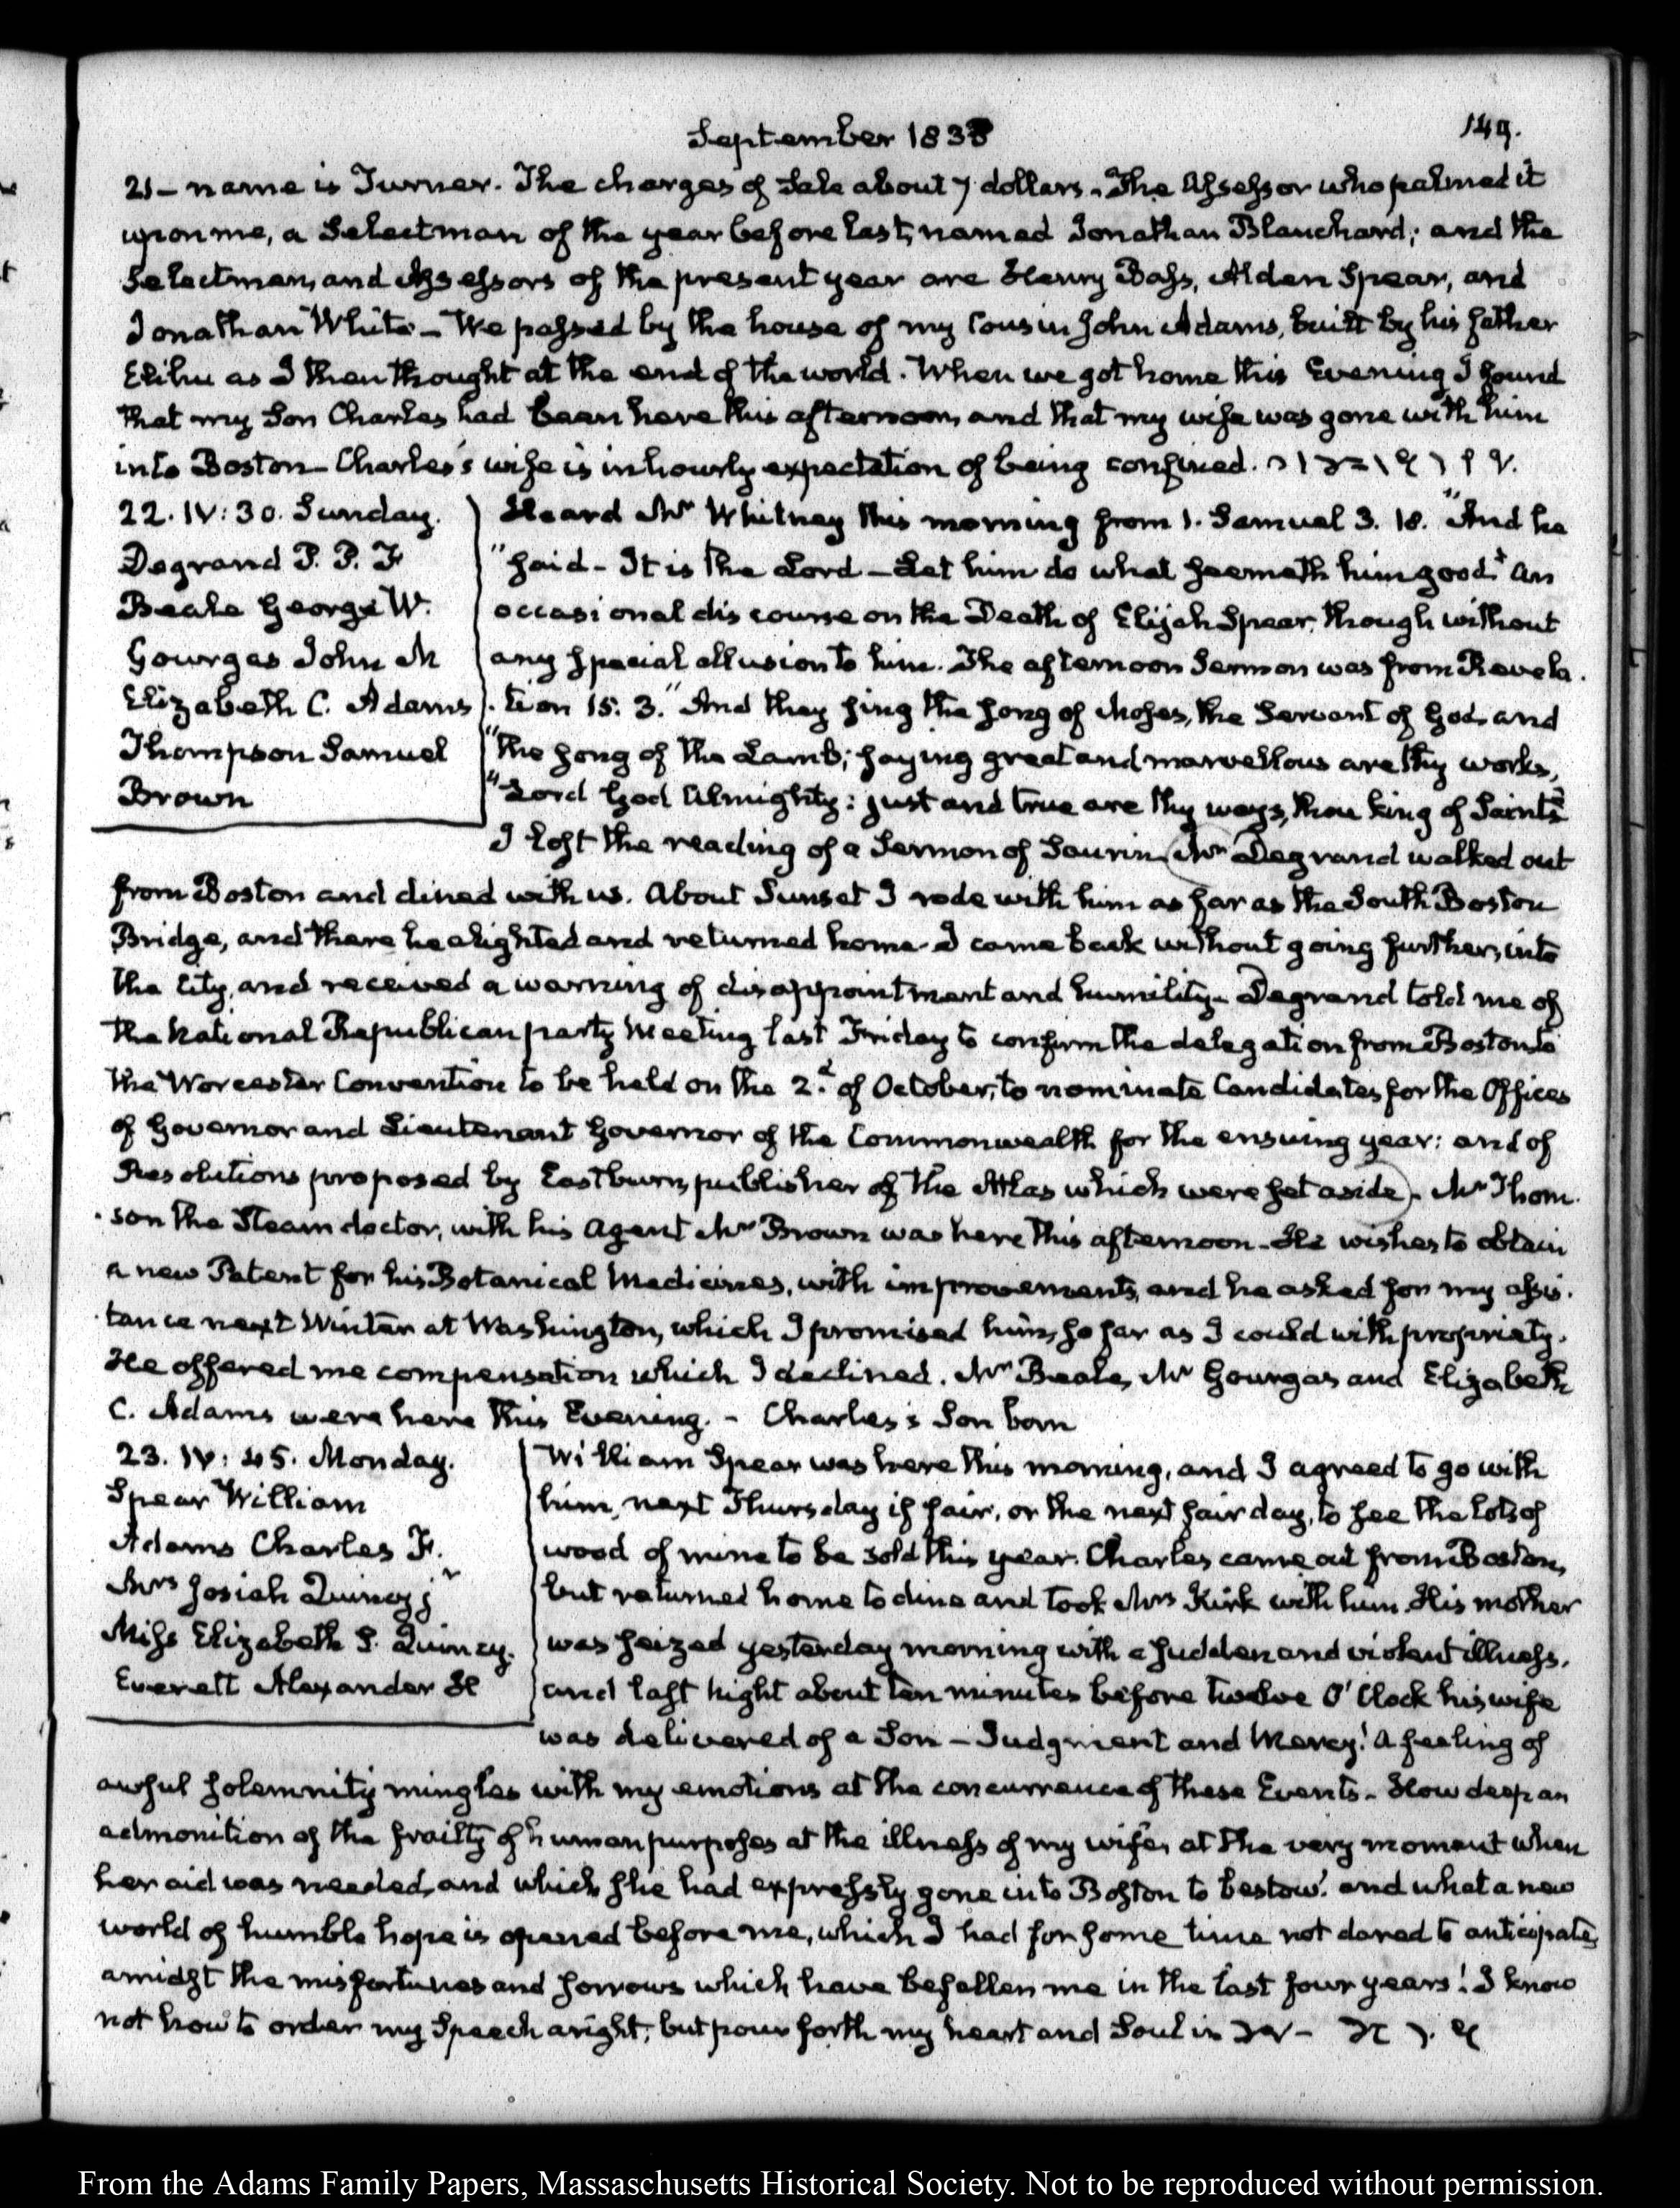 September 1833
149.
21 – name is Turner. The charges of Sale about 7 dollars. The Assessor who palmed it
upon me, a Selectman of the year before last, named Jonathan Blanchard; and the
Selectmen, and Assessors of the present year are Henry Bass, Alden Spear, and
Jonathan White – We passed by the house of my Cousin John Adams, built by his father
Elihu as I then thought at the end of the world. When we got home this Evening I found
that my Son Charles had been here this afternoon, and that my wife was gone with him
into Boston – Charles's wife is in hourly expectation of being confined.
22. IV: 30. Sunday.
Degrand P. P. F
Beale George W.
Gourgas John M
Elizabeth C. Adams
Thompson Samuel
Brown
Heard Mr Whitney this morning from 1. Samuel 3. 18. "And he
"said – It is the Lord – Let him do what seemeth him good." An
occasional discourse on the Death of Elijah Spear, though without
any special allusion to him. The afternoon Sermon was from Revela-
-tion 15. 3. "And they sing the song of Moses, the Servant of God, and
"the song of the Lamb; saying great and marvellous are thy works,
"Lord God Almighty: just and true are thy ways, thou king of Saints"
I lost the reading of a Sermon of Saurin (Mr Degrand walked out
from Boston and dined with us. About Sunset I rode with him as far as the South Boston
Bridge, and there he alighted and returned home – I came back without going further, into
the City, and received a warning of disappointment and humility – Degrand told me of
the National Republican party Meeting last Friday to confirm the delegation from Boston to
the Worcester Convention to be held on the 2d of October, to nominate Candidates for the Offices
of Governor and Lieutenant Governor of the Commonwealth for the ensuing year: and of
Resolutions proposed by Eastburn, publisher of the Atlas which were set aside). Mr Thom-
-son the Steam doctor, with his Agent Mr Brown was here this afternoon. He wishes to obtain
a new Patent for his Botanical Medicines, with improvements, and he asked for my assis-
-tance next Winter at Washington, which I promised him, so far as I could with propriety.
He offered me compensation which I declined. Mr Beale, Mr Gourgas and Elizabeth
C. Adams were here this Evening. – Charles's Son born
23. IV: 45. Monday.
Spear William
Adams Charles F.
Mrs Josiah Quincy jr
Miss Elizabeth S. Quincy.
Everett Alexander H
William Spear was here this morning, and I agreed to go with
him, next Thursday if fair, or the next fair day, to see the lots of
wood of mine to be sold this year. Charles came out from Boston,
but returned home to dine and took Mrs Kirk with him. His mother
was seized yesterday morning with a sudden and violent illness,
and last night about ten minutes before twelve O'Clock his wife
was delivered of a Son – Judgment and Mercy! A feeling of
awful solemnity mingles with my emotions at the concurrence of these Events – How deep an
admonition of the frailty of human purposes at the illness of my wife, at the very moment when
her aid was needed, and which she had expressly gone into Boston to bestow! and what a new
world of humble hope is opened before me, which I had for some time not dared to anticipate,
amidst the misfortunes and sorrows which have befallen me in the last four years! I know
not how to order my Speech aright, but pour forth my heart and Soul in
From the Adams Family Papers, Massachusetts Historical Society. Not to be reproduced without permission.